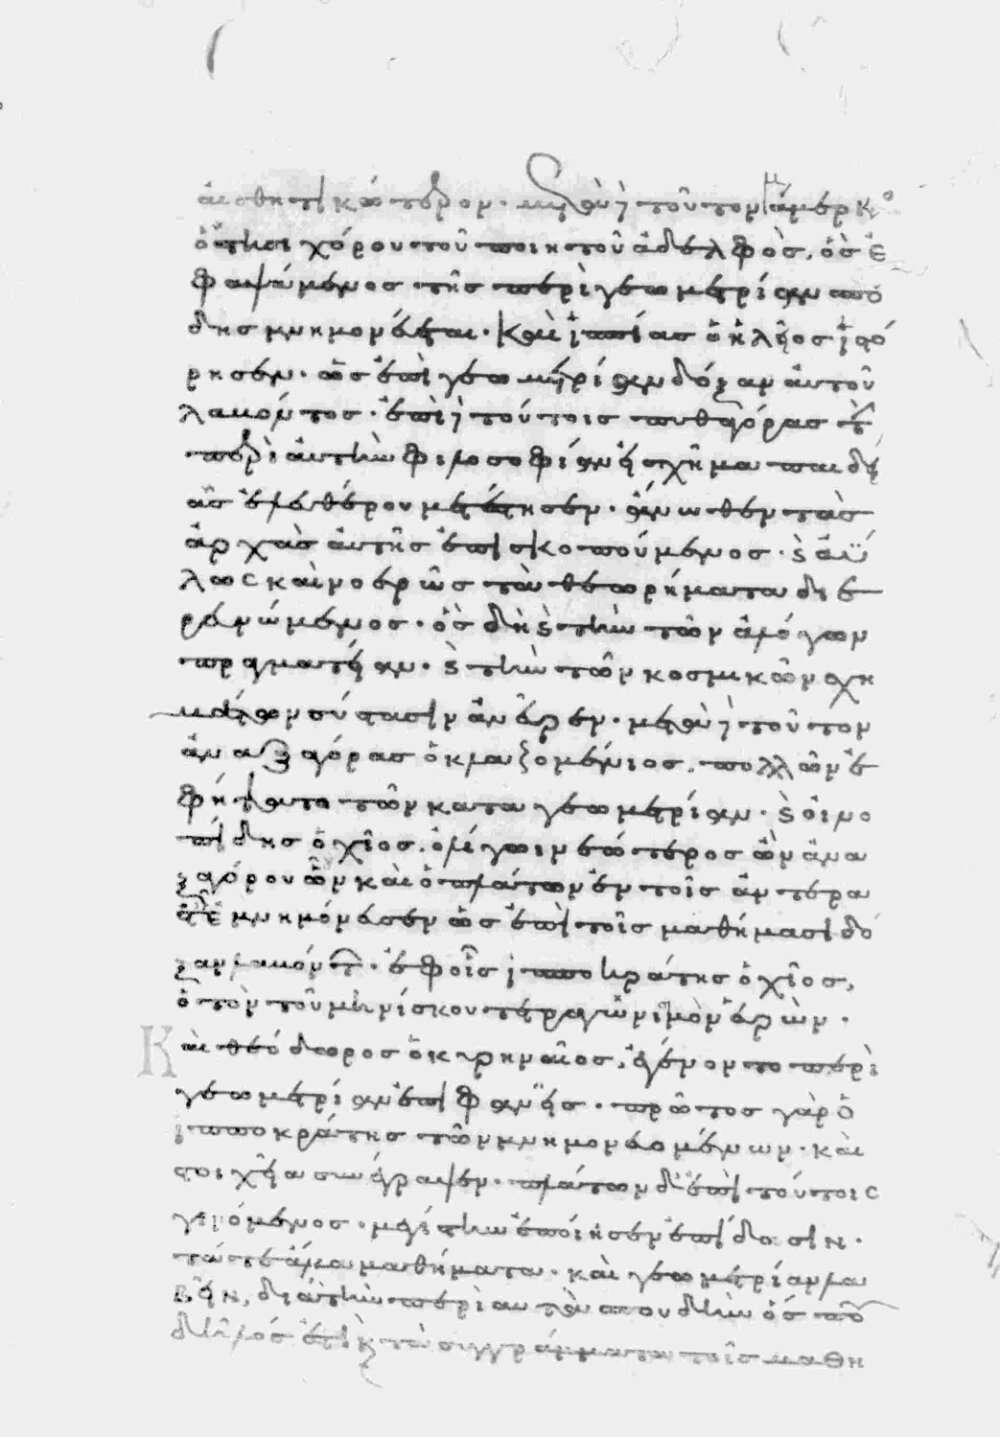 αἰσθητικώτερον. μετὰ δὲ τοῦτον μάμερκος
ὁ στησιχόρου τοῦ ποιητοῦ ἀδελφὸς, ὃς ἐ
φαψάμενος τῆς περὶ γεωμετρίαν σπου
δῆς μνημονεύεται. Καὶ ἱππίας ὁ ἠλεῖος ἱστό
ρησεν. ὡς ἐπὶ γεωμετρίαν δόξαν αὐτοῦ
λαβόντος. ἐπὶ δὲ τούτοις πυθαγόρας τὴν
περὶ αὐτὴν φιλοσοφίαν εἰς σχῆμα παιδεί
ας ἐλευθέρου μετέστησεν. ἄνωθεν τὰς
ἀρχὰς αὐτῆς ἐπισκοπούμενος. καὶ ἀΰ
λως καὶ νοερῶς τὰ θεωρήματα διε
ρευνώμενος. ὃς δὴ καὶ τὴν τῶν ἀλόγων
πραγματείαν. καὶ τὴν τῶν κοσμικῶν σχη
μάτων σύστασιν ἀνεῦρεν. μετὰ δὲ τοῦτον
ἀναξαγόρας ὁ κλαζομένιος. πολλῶν ἐ
φήψατο τῶν κατὰ γεωμετρίαν. καὶ οἰνο
πίδης ὁ χῖος. ὀλίγωι νεώτερος ὢν ἀνα
ξαγόρου ὧν καὶ ὁ πλάτων ἐν τοῖς ἀντερα
σταῖς ἐμνημόνευσεν ὡς ἐπὶ τοῖς μαθήμασι δό
ξαν λαβόντων. ἐφ οἷς ἱπποκράτης ὁ χῖος,
ὁ τὸν τοῦ μηνίσκου τετραγωνισμὸν εὑρὼν.
Καὶ θεόδωρος ὁ κυρηναῖος, ἐγένοντο περὶ
γεωμετρίαν ἐπιφανεῖς. πρῶτος γὰρ ὁ
ἱπποκράτης τῶν μνημονευομένων. καὶ
στοιχεῖα συνέγραψεν. πλάτων δ' ἐπὶ τούτοις
γενόμενος. μεγίστην ἐποίησεν ἐπίδοσιν.
τά τε ἄλλα μαθήματα. καὶ γεωμετρίαν λα
βεῖν, διὰ τὴν περὶ αὐτὰ σπουδὴν ὅς που
δῆλός ἐστι καὶ τὰ συγγράμματα τοῖς μαθη